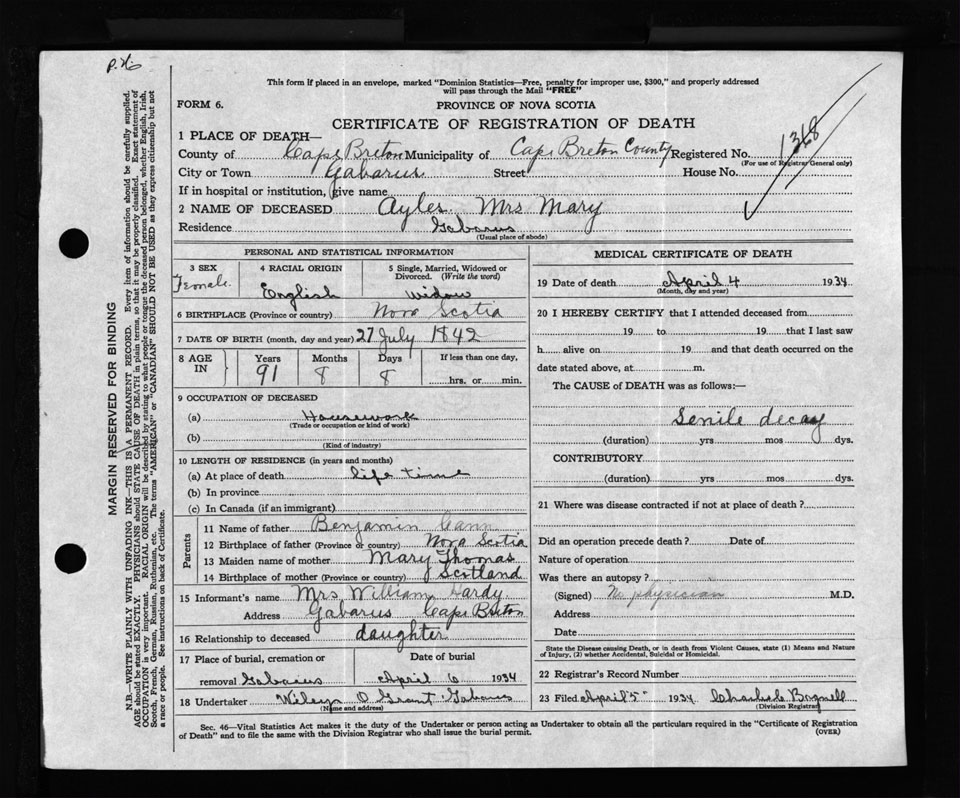 This form if placed in an envelope, marked "Dominion Statistics—Free, penalty for improper use, $300," and properly addressed
will pass through the Mail "FREE"
FORM 6.
PROVINCE OF NOVA SCOTIA
CERTIFICATE OF REGISTRATION OF DEATH
1 PLACE OF DEATH—
County of Cape Breton Municipality of Cape Breton County Registered No. 1368
(For use of Registrar General only)
City or Town Gabarus Street House No.
If in hospital or institution, give name
2 NAME OF DECEASED Ayles Mrs Mary
Residence Gabarus
(Usual place of abode)
PERSONAL AND STATISTICAL INFORMATION
3 SEX 4 RACIAL ORIGIN 5 Single, Married, Widowed or
Divorced. (Write the word)
Female English widow
6 BIRTHPLACE (Province or country) Nova Scotia
7 DATE OF BIRTH (month, day and year) 27 July 1842
8 AGE IN Years Months Days If less than one day,
91 8 8 hrs. or min.
9 OCCUPATION OF DECEASED
(a) Housework
(Trade or occupation or kind of work)
(b)
(Kind of industry)
10 LENGTH OF RESIDENCE (in years and months)
(a) At place of death life time
(b) In province
(c) In Canada (if an immigrant)
Parents
11 Name of father Benjamin Cann
12 Birthplace of father (Province or country) Nova Scotia
13 Maiden name of mother Mary Thomas
14 Birthplace of mother (Province or country) Scotland
15 Informant's name Mrs William Hardy
Address Gabarus Cape Breton
16 Relationship to deceased daughter
17 Place of burial, cremation or Date of burial
removal Gabarus April 6 1934
18 Undertaker O Grant Gabarus
(Name and address)
MEDICAL CERTIFICATE OF DEATH
19 Date of death April 4 1934
(Month, day and year)
20 I HEREBY CERTIFY that I attended deceased from
19 to 19 that I last saw
h alive on 19 and that death occurred on the
date stated above, at m.
The CAUSE of DEATH was as follows:—
Senile decay
(duration) yrs mos dys.
CONTRIBUTORY
(duration) yrs mos dys.
21 Where was disease contracted if not at place of death?
Did an operation precede death? Date of
Nature of operation
Was there an autopsy?
(Signed) No physician M.D.
Address
Date
State the Disease causing Death, or in death from Violent Causes, state (1) Means and Nature
of Injury, (2) whether Accidental, Suicidal or Homicidal.
22 Registrar's Record Number
23 Filed April 5 1934 Charles Bagnell
(Division Registrar)
Sec. 46—Vital Statistics Act makes it the duty of the Undertaker or person acting as Undertaker to obtain all the particulars required in the "Certificate of Registration
of Death" and to file the same with the Division Registrar who shall issue the burial permit.
(OVER)
MARGIN RESERVED FOR BINDING
N.B.—WRITE PLAINLY WITH UNFADING INK—THIS IS A PERMANENT RECORD. Every item of information should be carefully supplied.
AGE should be stated EXACTLY. PHYSICIANS should STATE CAUSE OF DEATH in plain terms, so that it may be properly classified. Exact statement of
OCCUPATION is very important. RACIAL ORIGIN will be described by stating to what people or tongue the deceased person belonged, whether English, Irish,
Scotch, French, German, Russian, Ruthenian, etc. The terms "AMERICAN" or "CANADIAN" SHOULD NOT BE USED as they express citizenship but not
a race or people. See instructions on back of Certificate.